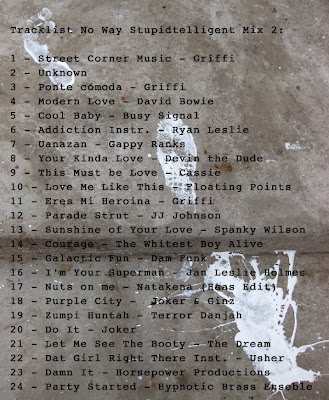 Tracklist No Way Stupidtelligent Mix 2:
1 - Street Corner Music - Griffi
2 - Unknown
3 - Ponte cómoda - Griffi
4 - Modern Love - David Bowie
5 - Cool Baby - Busy Signal
6 - Addiction Instr. - Ryan Leslie
7 - Uanazan - Gappy Ranks
8 - Your Kinda Love - Devin the Dude
9 - This Must be Love - Cassie
10 - Love Me Like This - Floating Points
11 - Eres Mi Heroina - Griffi
12 - Parade Strut - JJ Johnson
13 - Sunshine of Your Love - Spanky Wilson
14 - Courage - The Whitest Boy Alive
15 - Galactic Fun - Dam Funk
16 - I'm Your Superman - Jan Leslie Holmes
17 - Nuts on me - Natakena (Edit)
18 - Purple City - Joker & Ginz
19 - Zumpi Huntah - Terror Danjah
20 - Do It - Joker
21 - Let Me See The Booty - The Dream
22 - Dat Girl Right There Inst. - Usher
23 - Damn It - Horsepower Productions
24 - Party Started - Hypnotic Brass Enseble